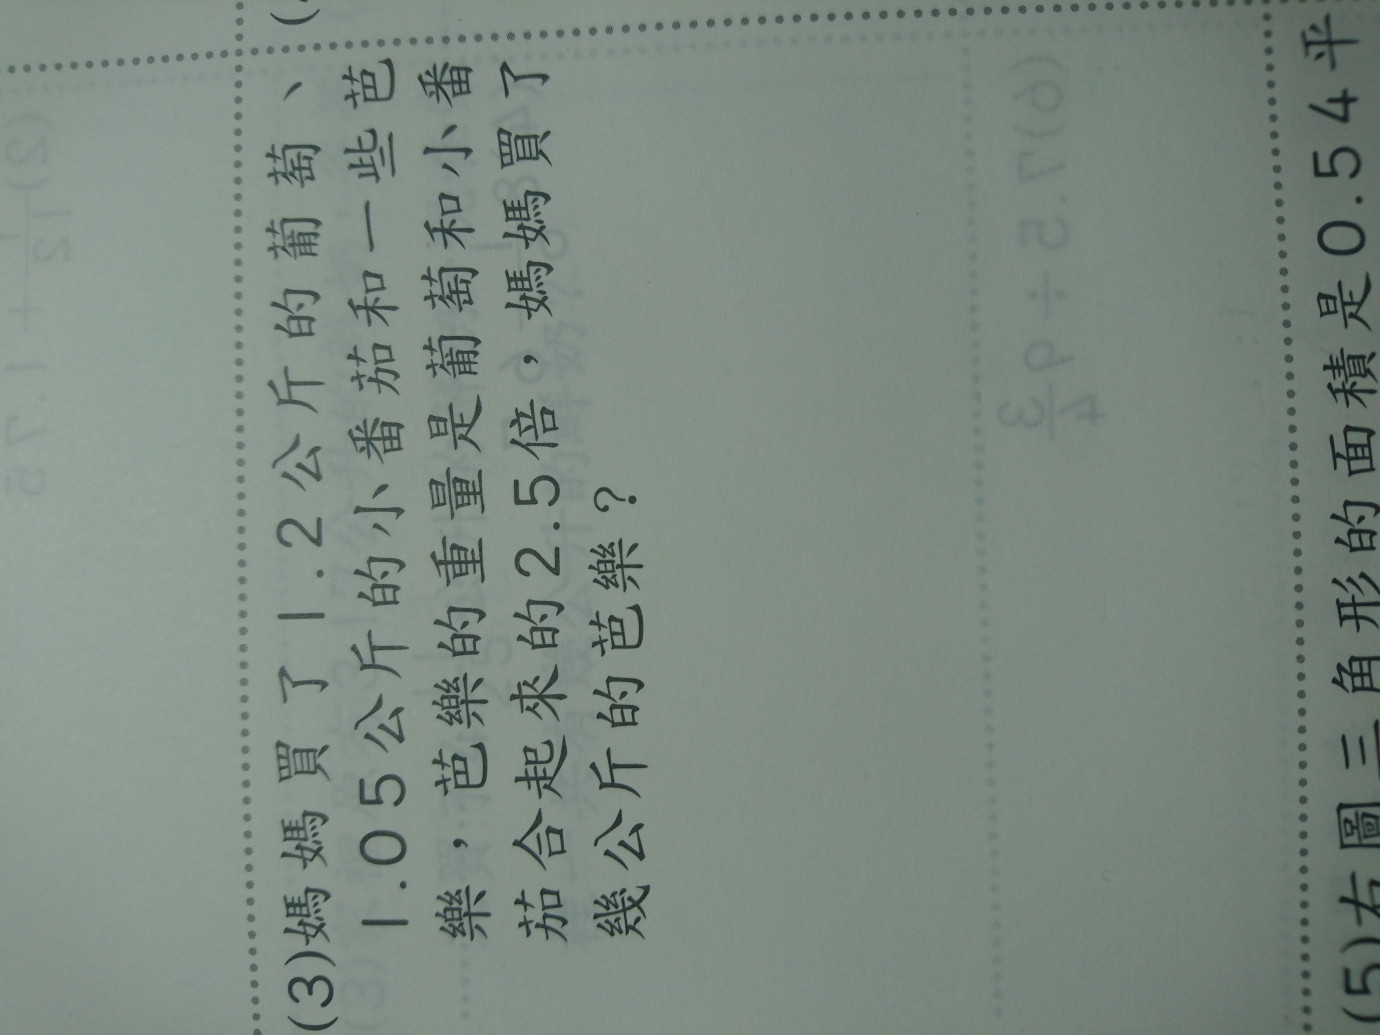 (3)媽媽買了1.2公斤的葡萄、
1.05公斤的小番茄和一些芭
樂，芭樂的重量是葡萄和小番
茄合起來的2.5倍，媽媽買了
幾公斤的芭樂？
(5)右圖三角形的面積是0.54平